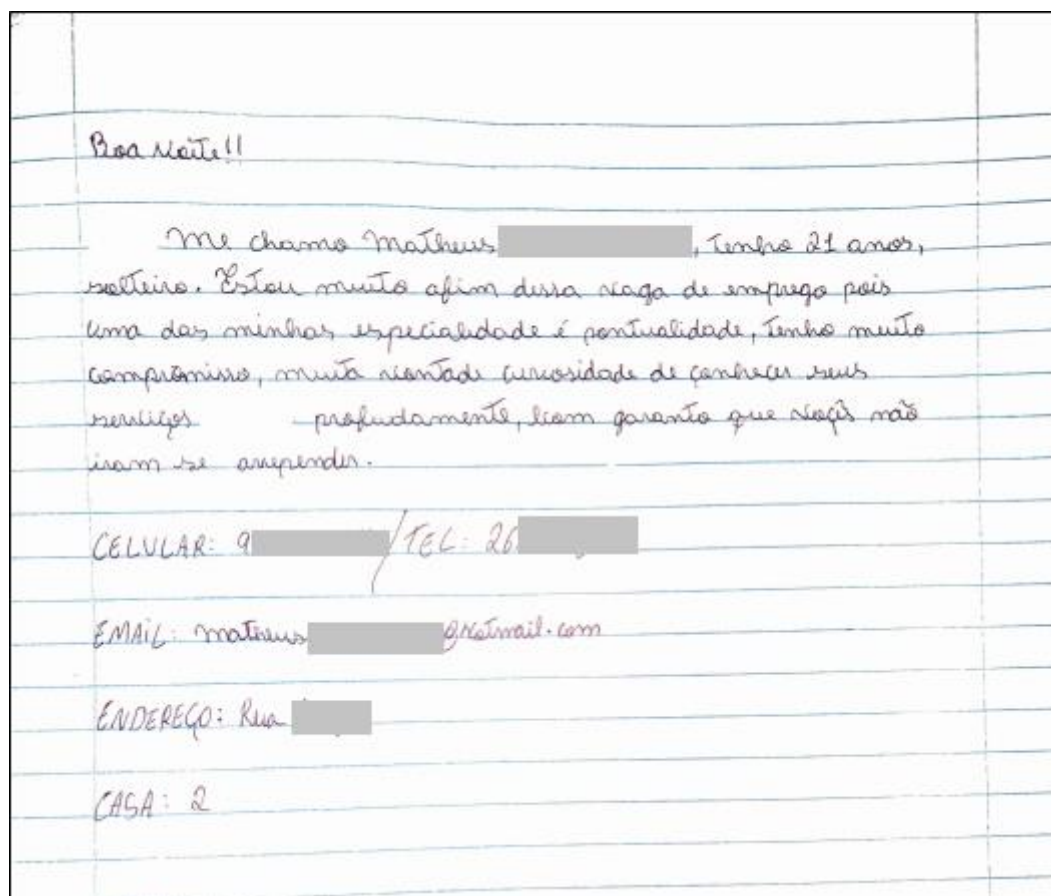 Boa Noite!!
Me chamo Matheus , Tenho 21 anos,
solteiro. Estou muito afim dessa vaga de emprego pois
uma das minhas especialidade é pontualidade, Tenho muito
compromisso, muita vontade curiosidade de conhecer seus
serviços profudamente, bom garanto que voçês não
iram se arrepender.
CELULAR: 9 / TEL: 26
EMAIL: matheus @hotmail.com
ENDEREÇO: Rua
CASA: 2